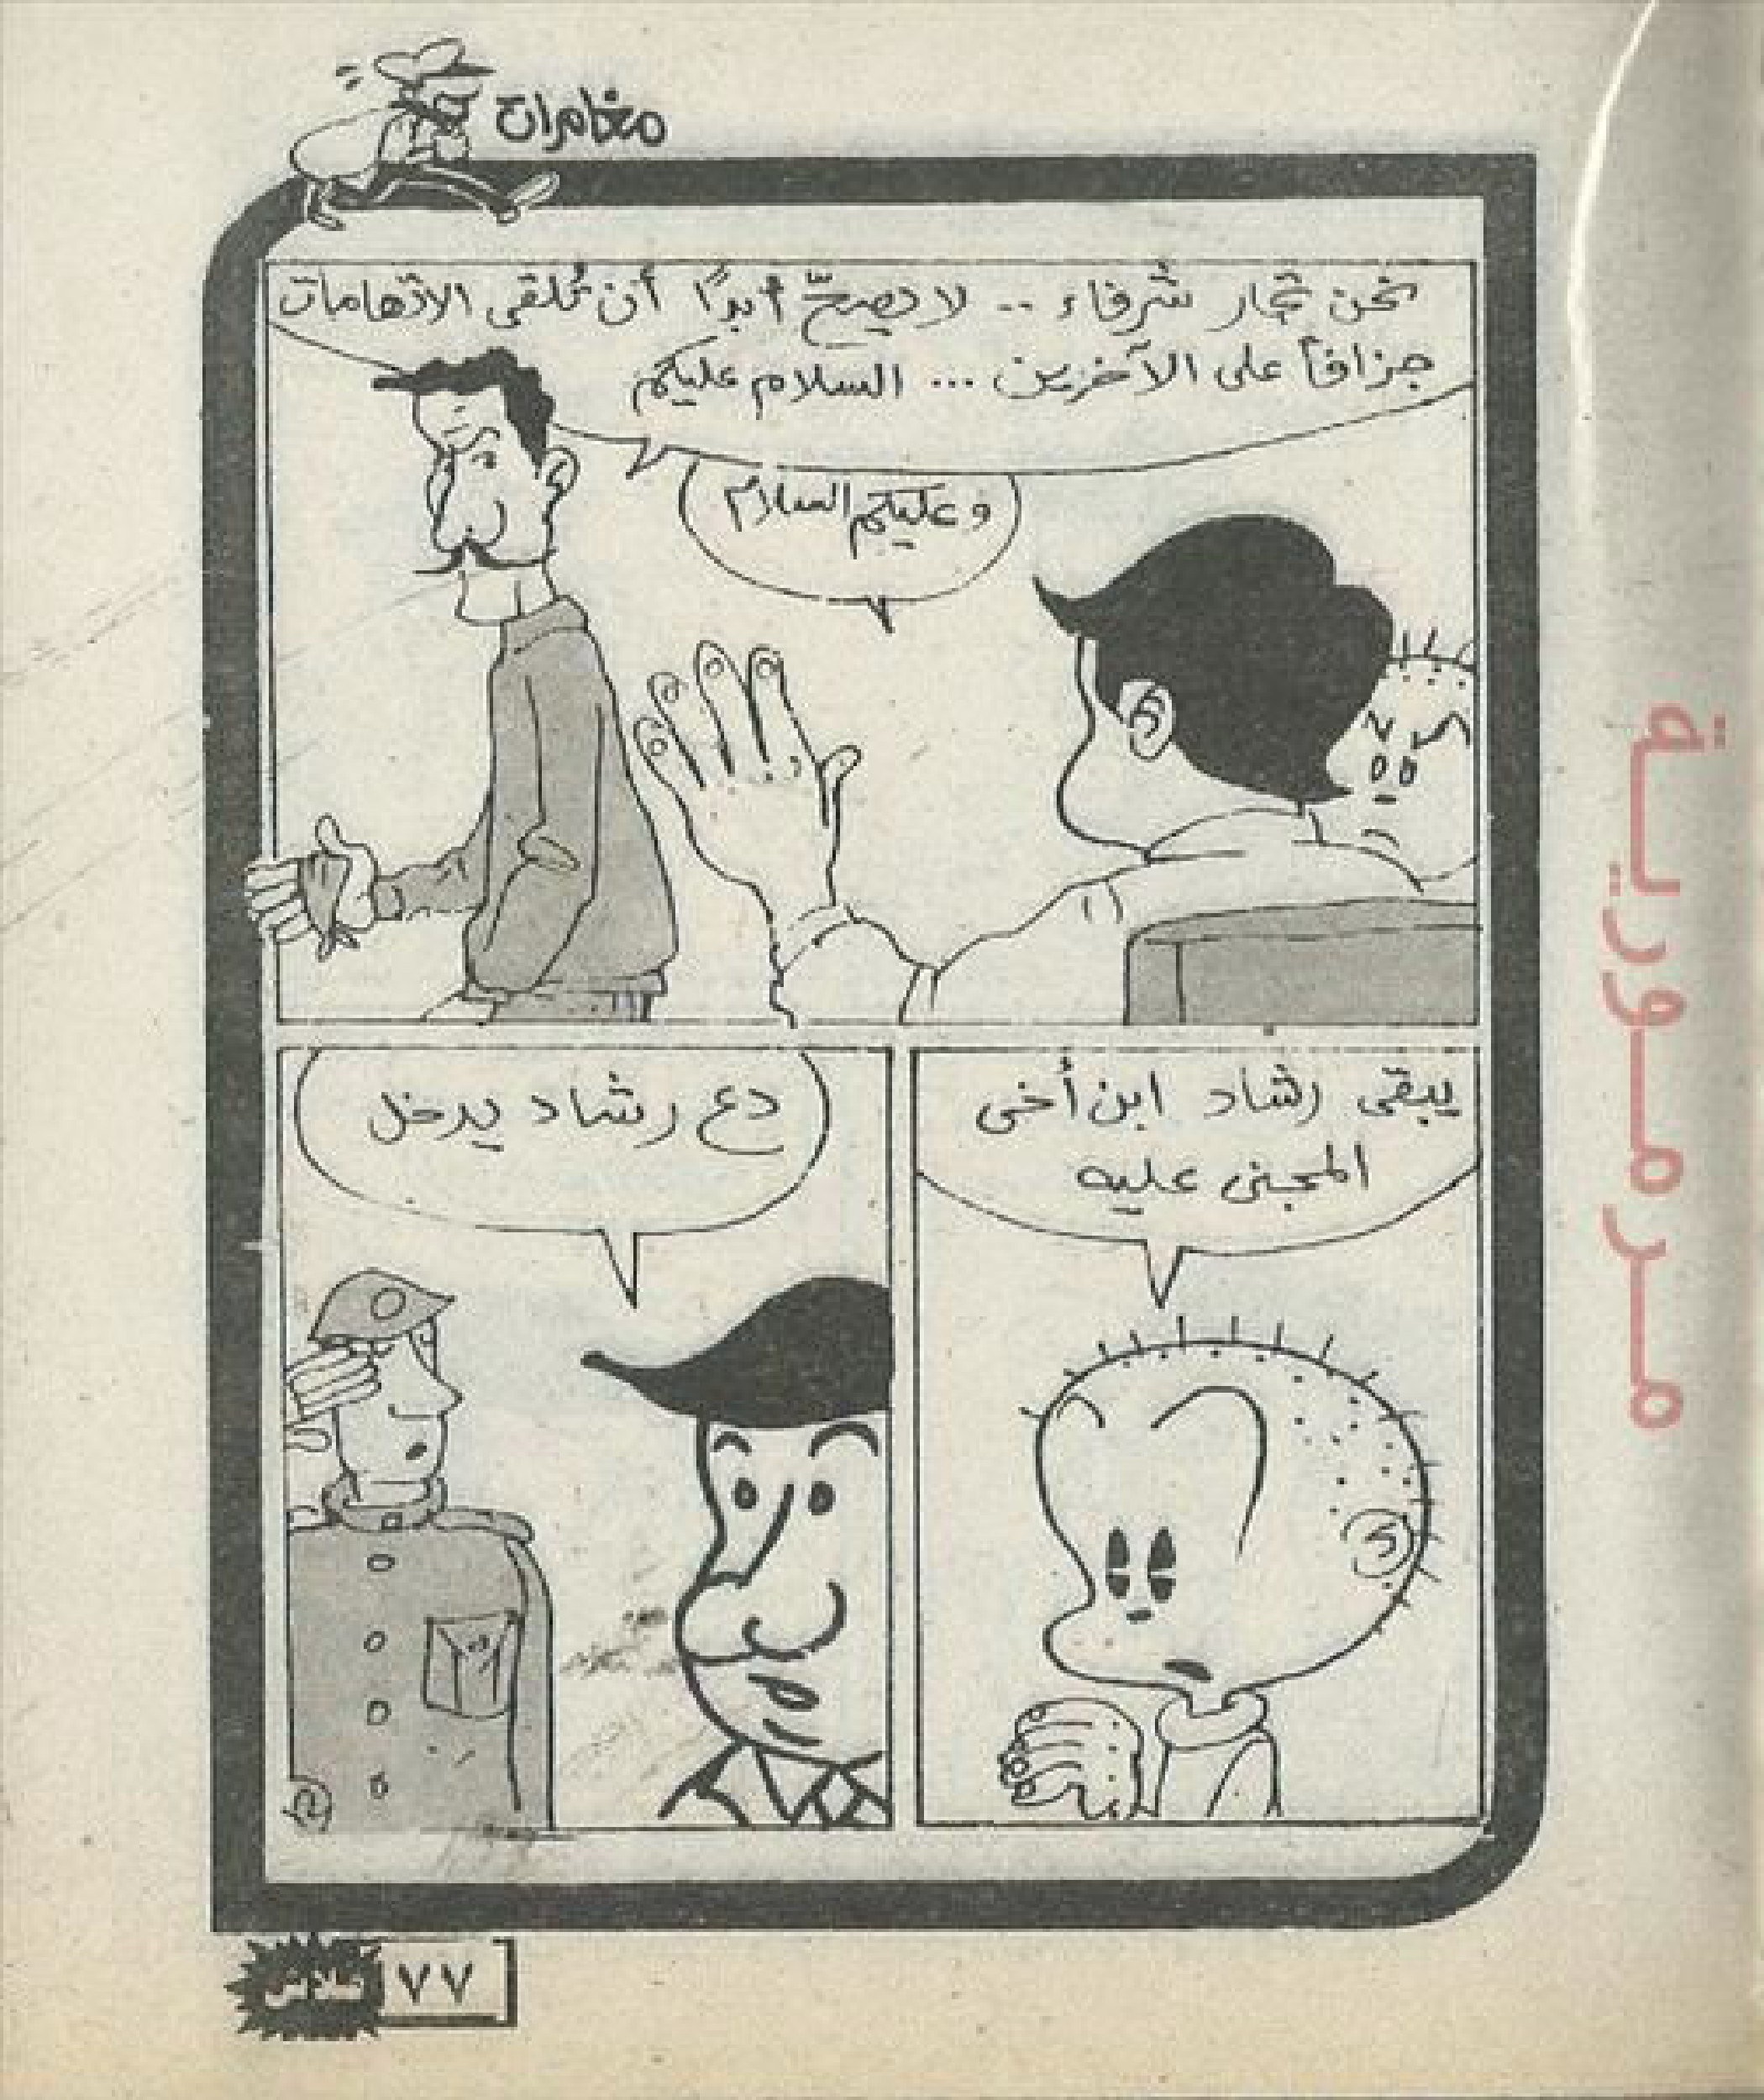 مغامرات
نحن تجار شرفاء .. لا يصحّ أبدًا أن تُلقى الاتهامات
جزافاً على الآخرين ... السلام عليكم
وعليكم السلام
يبقى رشاد ابن أخى
المجنى عليه
دع رشاد يدخل
مرمورية
٧٧